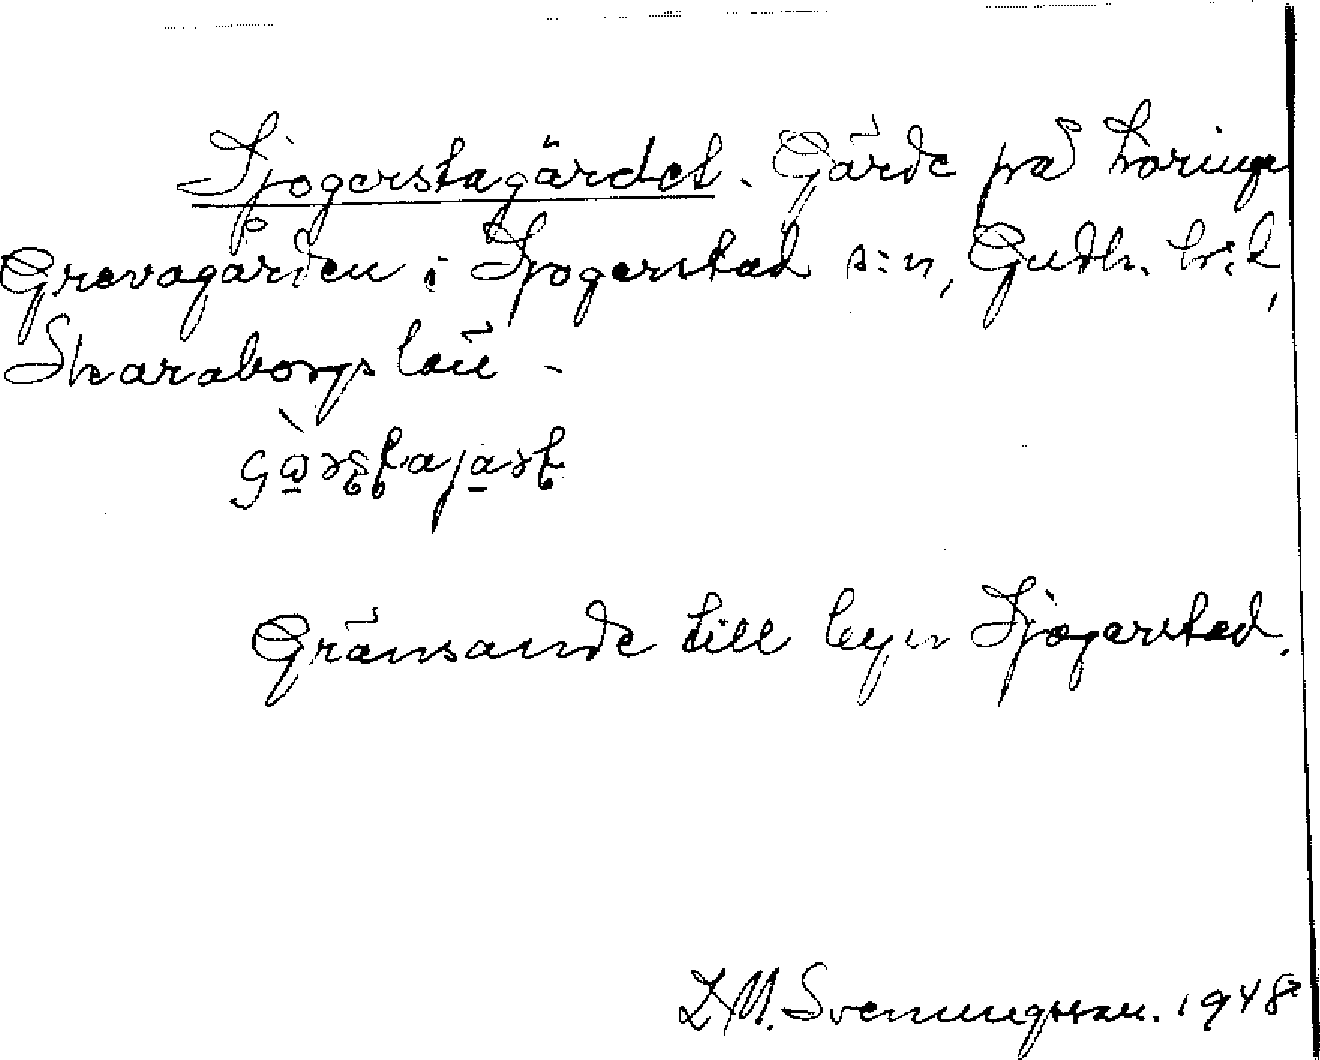 Sjogerstagärdet. Gärde på Loringa
Grevagården i Sjogerstad s:n, Gudh. hd,
Skaraborgs län -
Gränsande till byn Sjogerstad.
Svenningsson. 1948